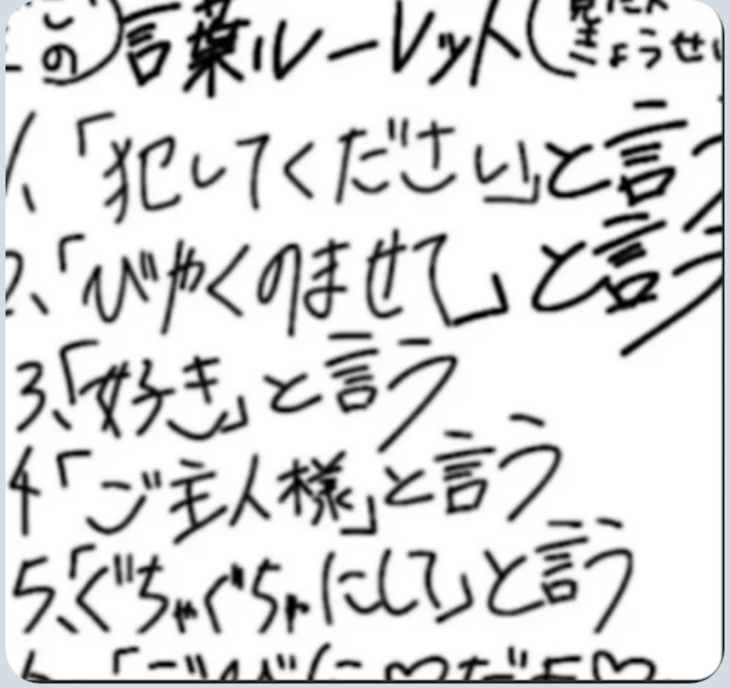 この 言葉ルーレット(見た人 きょうせい
1、「犯してください」と言う
2、「びやくのませて」と言う
3、「好き」と言う
4「ご主人様」と言う
5、「ぐちゃぐちゃにして」と言う